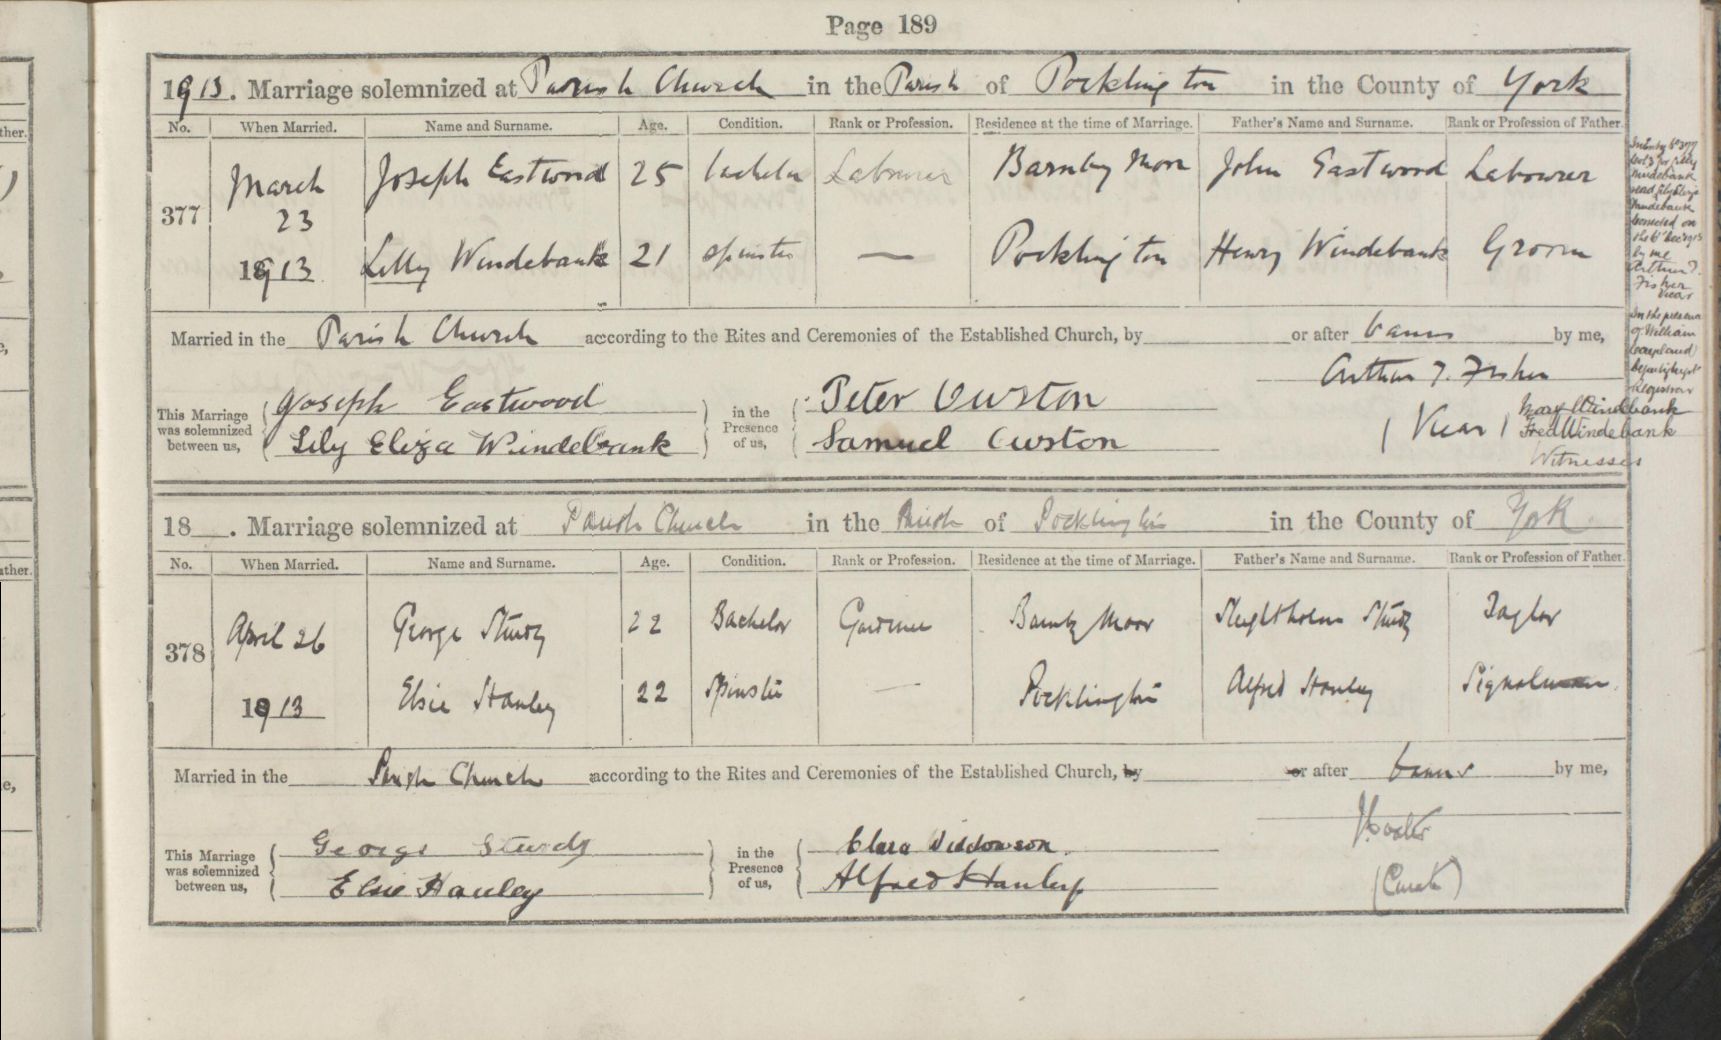 Page 189
1913. Marriage solemnized at Parish Church in the Parish of Pocklington in the County of York
No. When Married. Name and Surname. Age. Condition. Rank or Profession. Residence at the time of Marriage. Father's Name and Surname. Rank or Profession of Father.
377 March 23 1913 Joseph Eastwood 25 bachelor Labourer Barnby Moor John Eastwood Labourer
Lilly Windebank 21 spinster — Pocklington Henry Windebank Groom
Married in the Parish Church according to the Rites and Ceremonies of the Established Church, by or after banns by me,
Arthur T. Fisher
(Vicar)
This Marriage was solemnized between us,
Joseph Eastwood
Lily Eliza Windebank
in the Presence of us,
Peter Owston
Samuel Owston
In Entry No 377
Col 3 for Lilly
Windebank
read Lily Eliza
Windebank
Corrected on
the 6th Dec 1913
by me
Arthur T.
Fisher
Vicar
In the presence
of William
Registrar
Mary Windebank
Fred Windebank
Witnesses
18 . Marriage solemnized at Parish Church in the Parish of Pocklington in the County of York
No. When Married. Name and Surname. Age. Condition. Rank or Profession. Residence at the time of Marriage. Father's Name and Surname. Rank or Profession of Father.
378 April 26 1913 George Sturdy 22 Bachelor Gardener Barnby Moor Sleightholme Sturdy Taylor
Elsie Hanley 22 Spinster — Pocklington Alfred Hanley Signalman
Married in the Parish Church according to the Rites and Ceremonies of the Established Church, by or after banns by me,
(Curate)
This Marriage was solemnized between us,
George Sturdy
Elsie Hanley
in the Presence of us,
Clara Widdowson.
Alfred Hanley